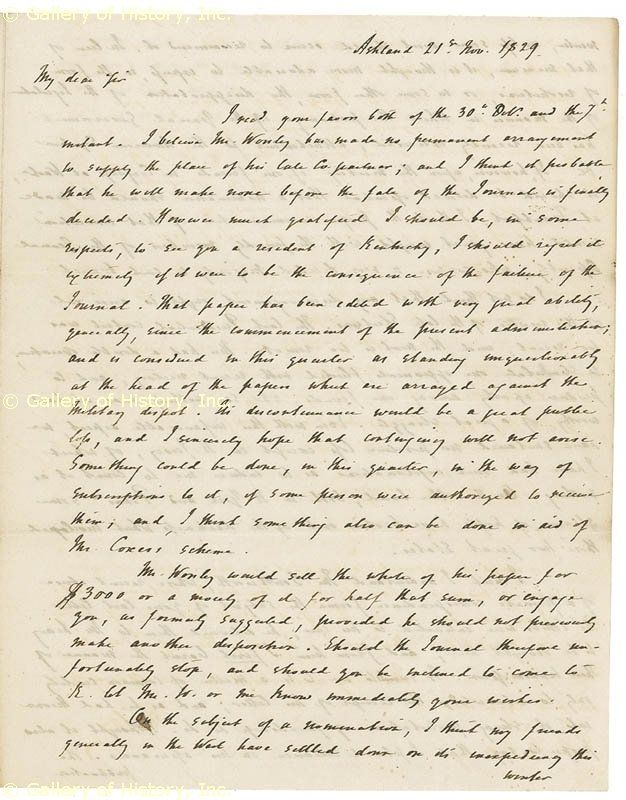 © Gallery of History, Inc.
Ashland 21st Nov. 1829.
My dear Sir
I recd your favors both of the 30th Octr and the 7th
instant. I believe Mr. Worsley has made no permanent arrangement
to supply the place of his late Copartner; and I think it probable
that he will make none before the fate of the Journal is finally
decided. However much gratified I should be, in some
respects, to see you a resident of Kentucky, I should regret it
extremely if it were to be the consequence of the failure of the
Journal. That paper has been edited with very great ability,
generally, since the commencement of the present administration;
and is considered in this quarter as standing unquestionably
at the head of the papers which are arrayed against the
© Gallery of History, Inc.
Military despot. Its discontinuance would be a great public
loss, and I sincerely hope that contingency will not arise.
Something could be done, in this quarter, in the way of
subscriptions to it, if some person were authorized to receive
them; and, I think something also can be done in aid of
Mr. Coxe's scheme.
Mr. Worsley would sell the whole of his paper for
$3000 or a moiety of it for half that sum, or engage
you, as formerly suggested, provided he should not previously
make another disposition. Should the Journal therefore un-
fortunately stop, and should you be inclined to come to
K. let Mr. W. or me know immediately your wishes.
On the subject of a nomination, I think my friends
generally in the West have settled down on its inexpediency this
winter
© Gallery of History, Inc.